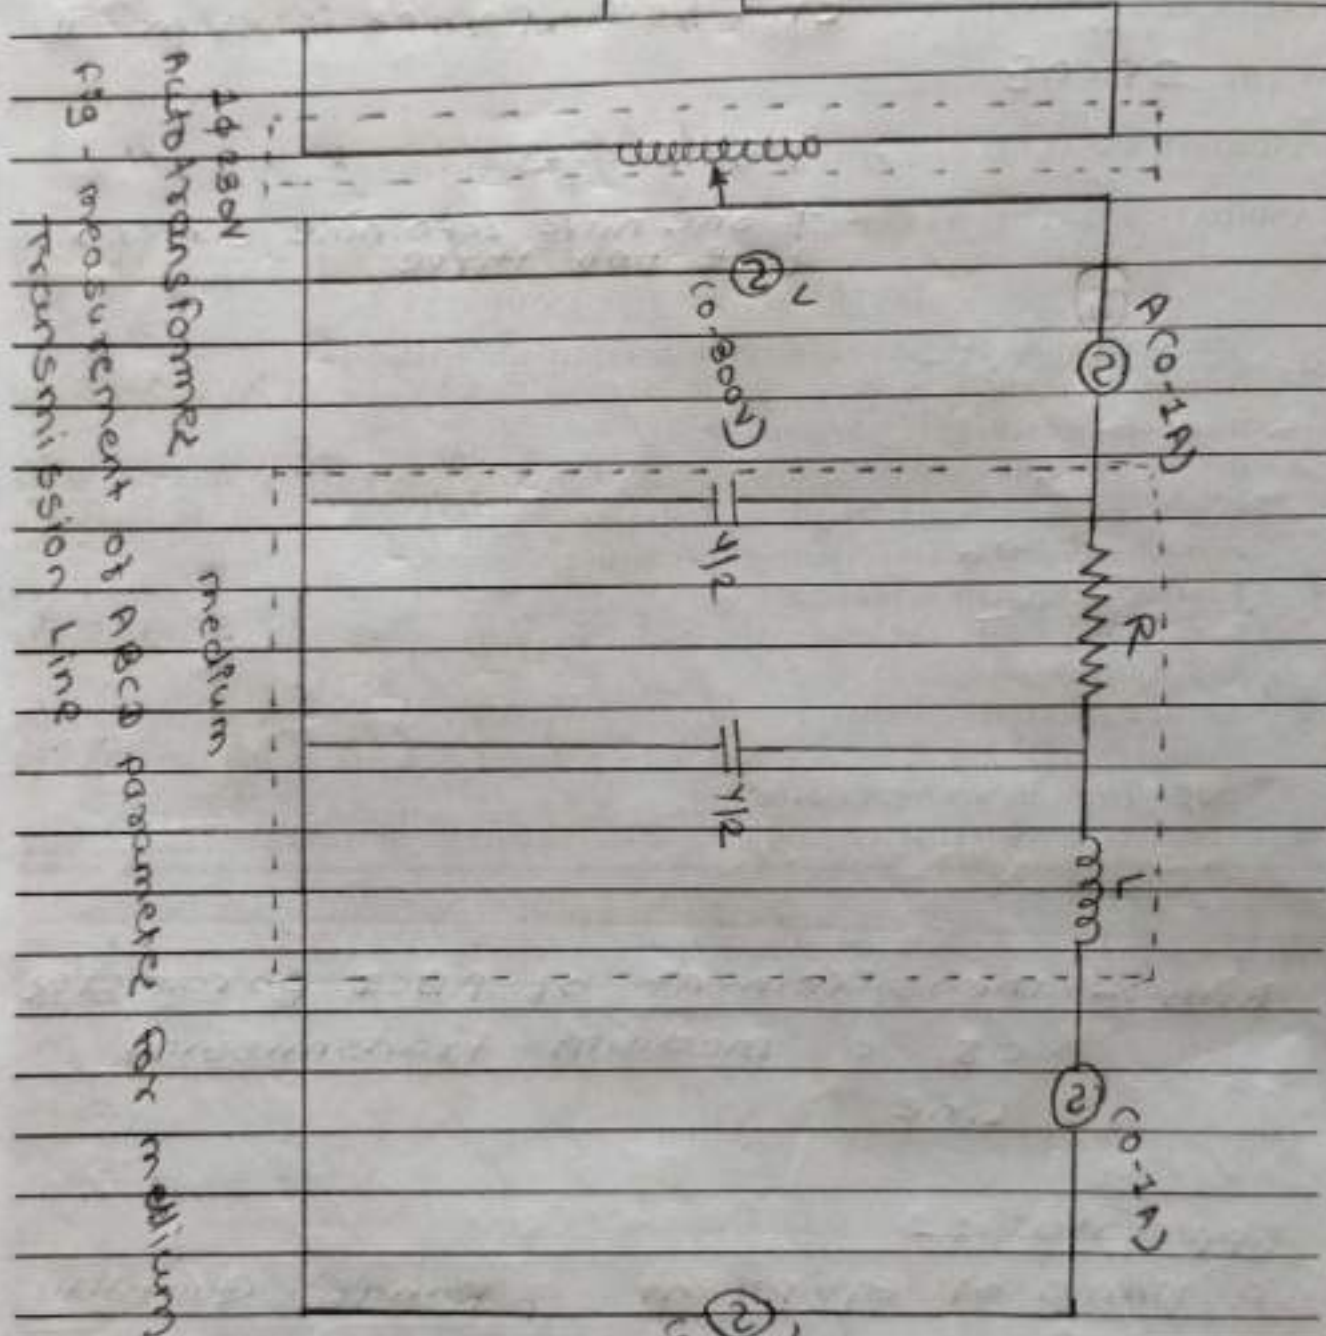 A (0-1A)
R
L
(0-1A)
V
(0-300V)
Y/2
Y/2
1φ 230V
Autotransformer
medium
fig - measurement of ABCD parameter for medium
Transmission Line